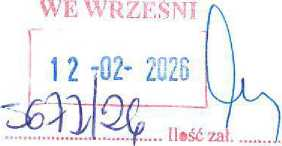 WE WRZEŚNI
12 -02- 2026
5672/26 Ilość zał.